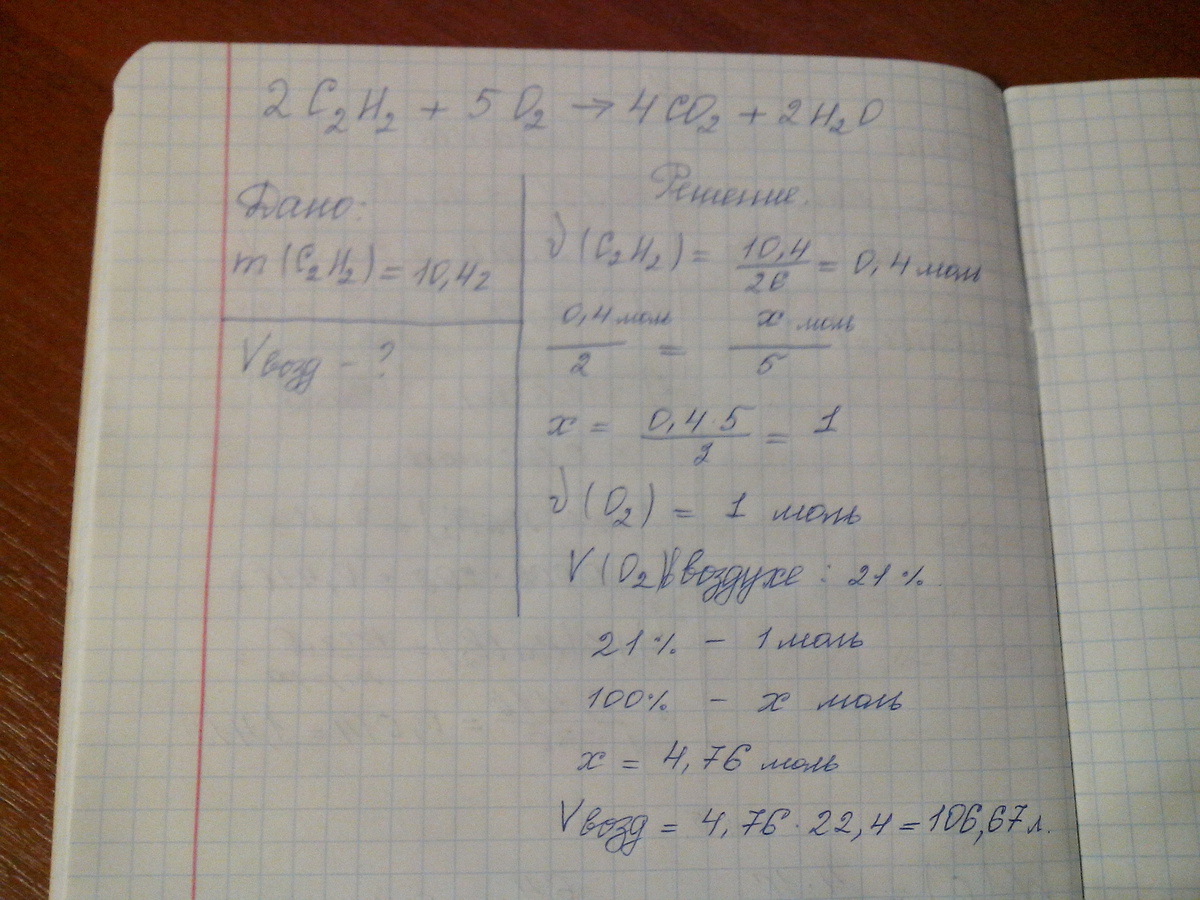 2C₂H₂ + 5O₂ → 4CO₂ + 2H₂O
Дано:
m(C₂H₂) = 10,4г
Vвозд - ?
Решение.
ν(C₂H₂) = 10,4/26 = 0,4 моль
0,4 моль/2 = x моль/5
x = 0,4·5/2 = 1
ν(O₂) = 1 моль
V(O₂) в воздухе: 21%.
21% - 1 моль
100% - x моль
x = 4,76 моль
Vвозд = 4,76·22,4 = 106,67 л.